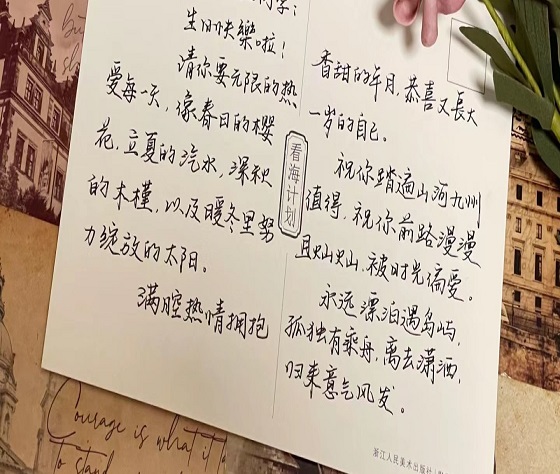 同学：
生日快樂啦！
請你要无限的热
爱每一天，像春日的樱
花，立夏的汽水，深秋
的木槿，以及暖冬里努
力绽放的太阳。
满腔热情拥抱
香甜的年月，恭喜又長大
一岁的自己。
祝你踏遍山河九州
值得，祝你前路漫漫
且灿灿，被时光偏爱。
永远漂泊遇岛屿，
孤独有乘舟，离去潇洒，
归来意气风发。
看海计划
浙江人民美术出版社
Courage is what it t
to stand